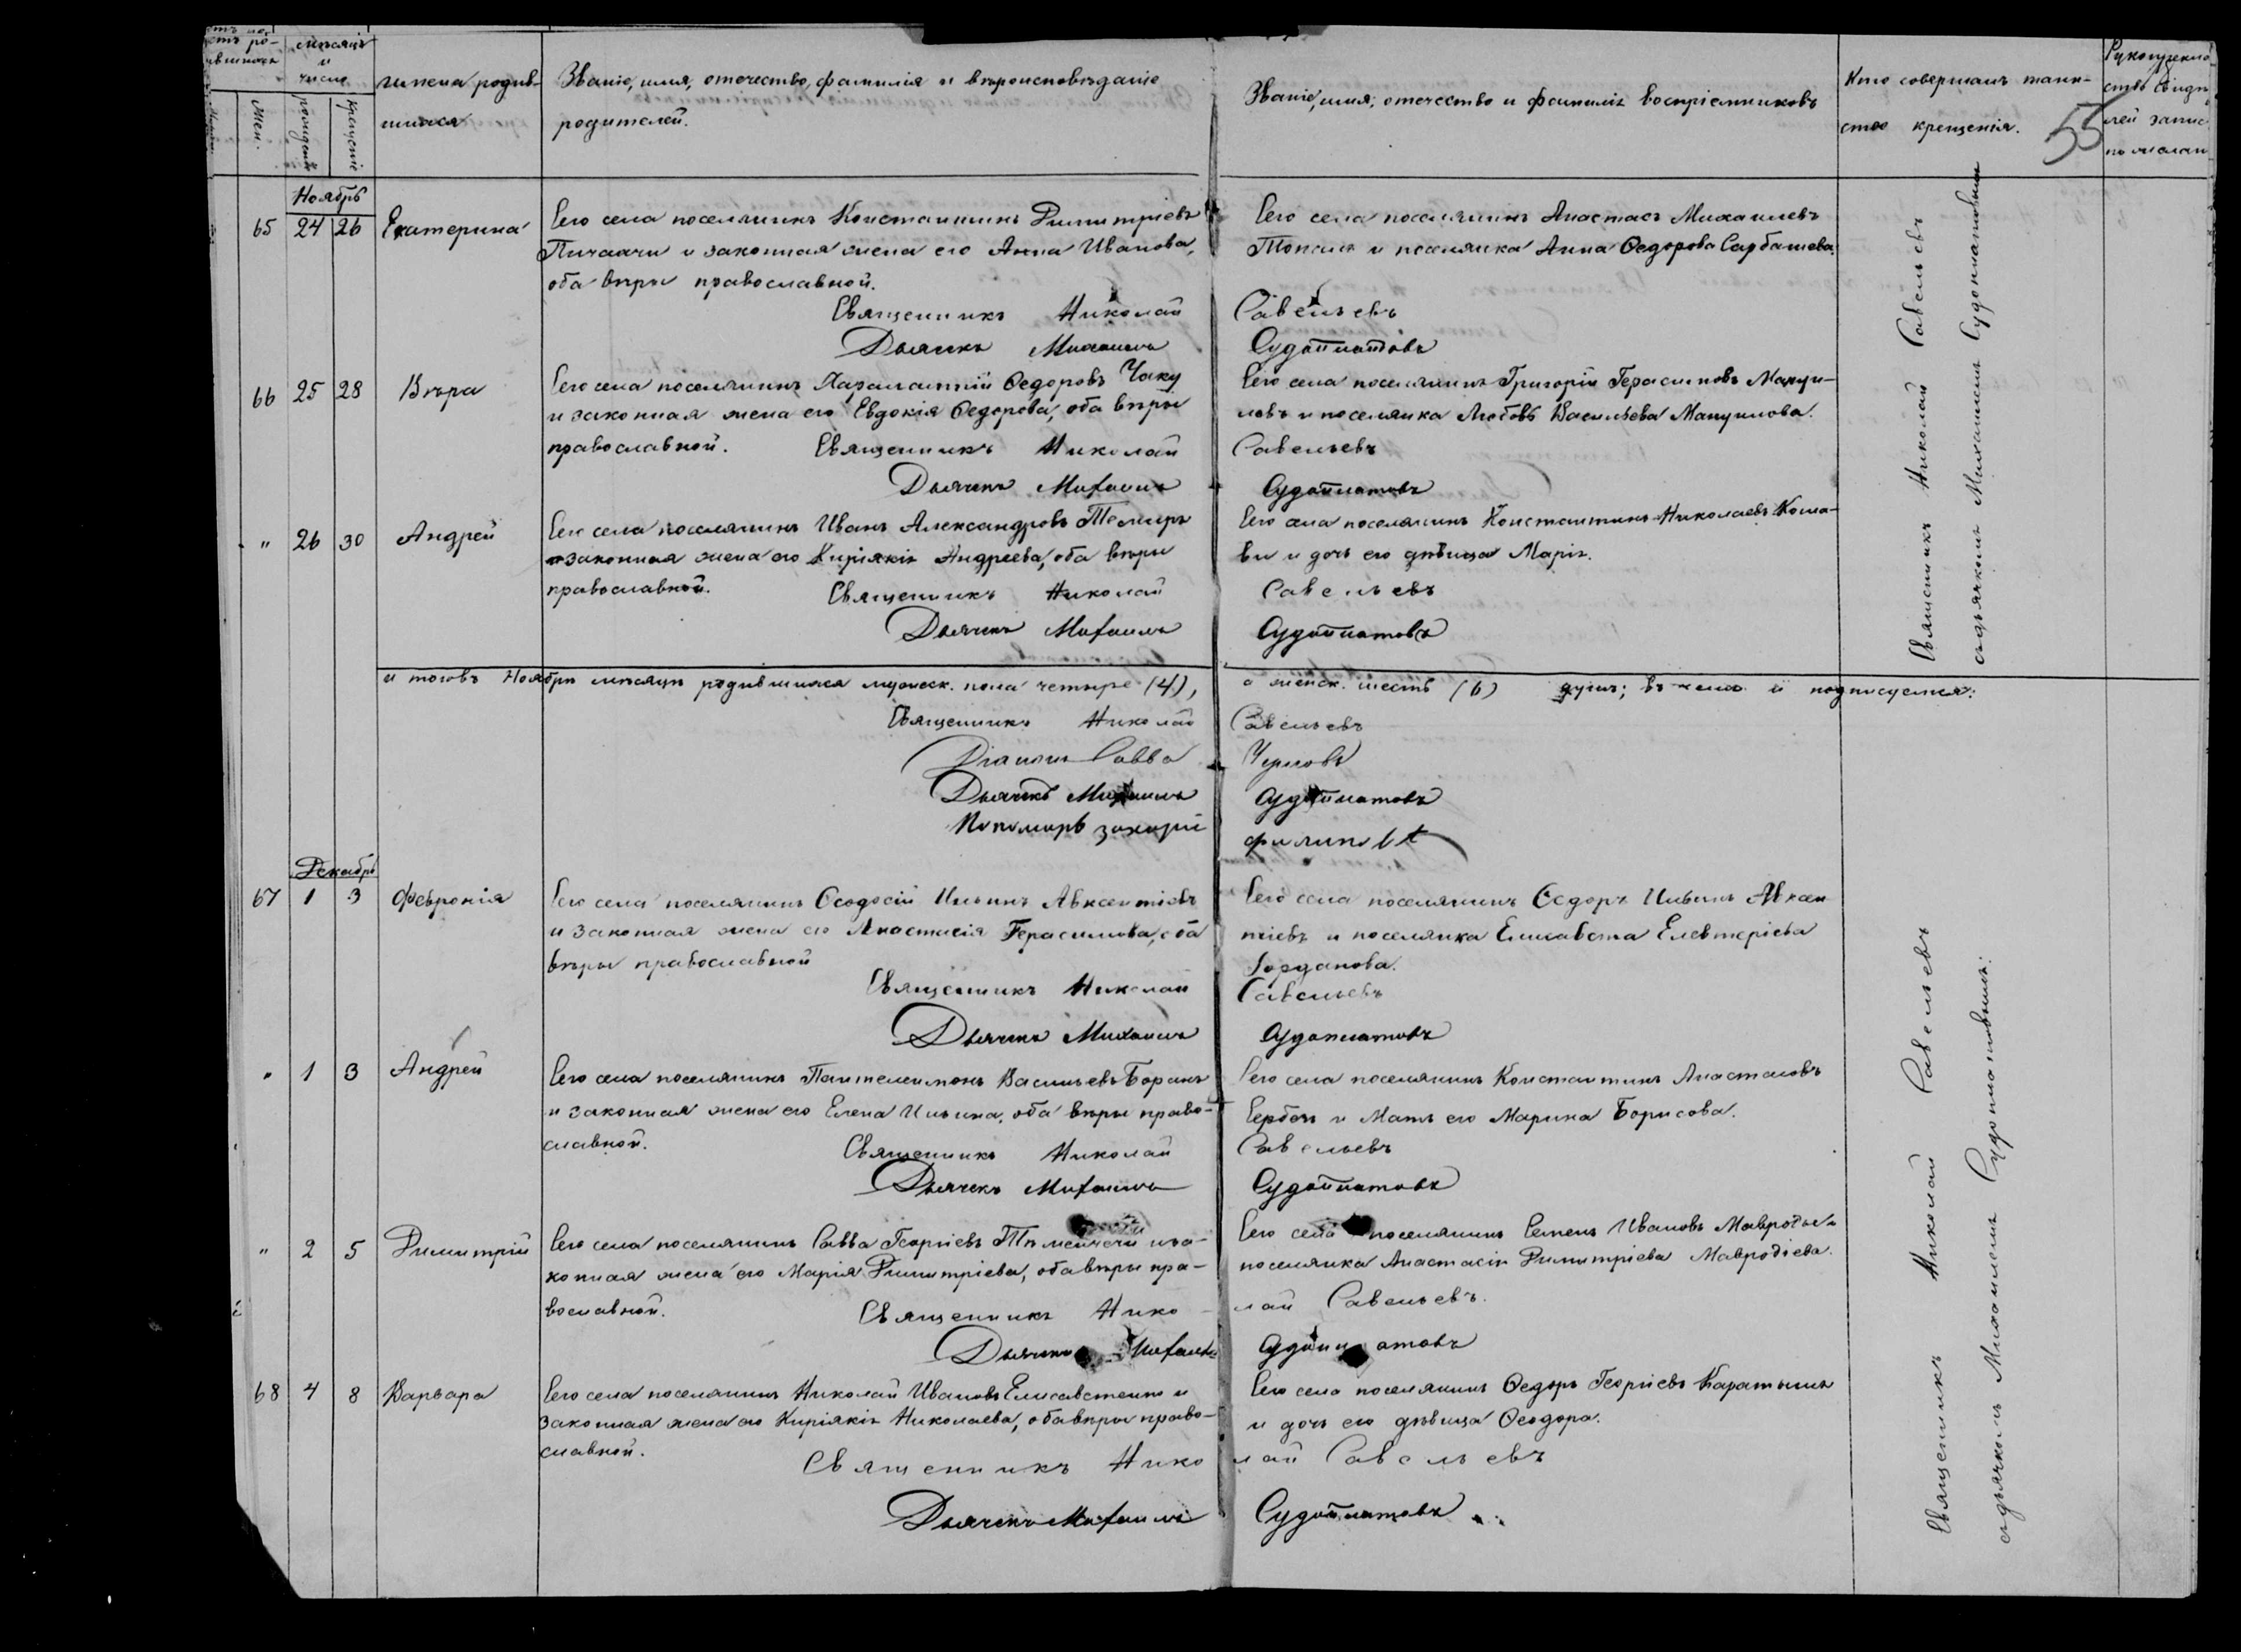 мѣсяцъ
и
число
Имена родив-
шихся
Званіе, имя, отечество, фамилія и вѣроисповѣданіе
родителей.
Званіе, имя, отечество и фамилія воспріемниковъ
Кто совершалъ таин-
ство крещенія.
55
Жен.
рожденія
крещенія
Ноябрь
65 24 26 Екатерина
Сего села поселянинъ Константинъ Димитріевъ
Пичахчи и законная жена его Анна Иванова,
оба вѣры православной.
Сего села поселянинъ Анастасъ Михаилевъ
и поселянка Анна Ѳедорова Сарбашева.
Священникъ Николай Савельевъ
Дьячекъ Михаилъ Судоплатовъ
66 25 28 Вѣра
Сего села поселянинъ Харалампій Ѳедоровъ Чаку
и законная жена его Евдокія Ѳедорова, оба вѣры
православной.
Сего села поселянинъ Григорій Герасимовъ Мануи-
ловъ и поселянка Любовь Васильева Мануилова.
Священникъ Николай Савельевъ
Дьячекъ Михаилъ Судоплатовъ
" 26 30 Андрей
Сего села поселянинъ Иванъ Александровъ Темиръ
и законная жена его Киріякія Андреева, оба вѣры
православной.
Сего села поселянинъ Константинъ Николаевъ
и дочь его дѣвица Марія.
Священникъ Николай Савельевъ
Дьячекъ Михаилъ Судоплатовъ
Священникъ Николай Савельевъ
съ дьячкомъ Михаиломъ Судоплатовымъ
Ноябрѣ мѣсяцѣ родившихся мужеск. пола четыре (4), а женск. шесть (6) душъ; въ чемъ и подписуемся:
Священникъ Николай Савельевъ
Діаконъ Савва Черновъ
Дьячекъ Михаилъ Судоплатовъ
Пономарь Захарій
Декабрь
67 1 3 Февронія
Сего села поселянинъ Ѳеодосій Ильинъ Авксентіевъ
и законная жена его Анастасія Герасимова, оба
вѣры православной
Сего села поселянинъ Ѳедоръ Ильинъ Авксен-
тіевъ и поселянка Елисавета Елевтеріева
Іорданова.
Священникъ Николай Савельевъ
Дьячекъ Михаилъ Судоплатовъ
" 1 3 Андрей
Сего села поселянинъ Пантелеимонъ Васильевъ Боранъ
и законная жена его Елена Ильина, оба вѣры право-
славной.
Сего села поселянинъ Константинъ Анастасовъ
и Мать его Марина Борисова.
Священникъ Николай Савельевъ
Дьячекъ Михаилъ Судоплатовъ
" 2 5 Димитрій
Сего села поселянинъ Савва Георгіевъ иза-
конная жена его Марія Димитріева, оба вѣры пра-
вославной.
Сего села поселянинъ Семенъ Ивановъ
поселянка Анастасія Димитріева Мавродіева.
Священникъ Николай Савельевъ.
Дьячекъ Михаилъ Судоплатовъ
68 4 8 Варвара
Сего села поселянинъ Николай Ивановъ и
законная жена его Киріякія Николаева, оба вѣры право-
славной.
Сего села поселянинъ Ѳедоръ Георгіевъ
и дочь его дѣвица Ѳеодора.
Священникъ Николай Савельевъ
Дьячекъ Михаилъ Судоплатовъ
Священникъ Николай Савельевъ
съ дьячкомъ Михаиломъ Судоплатовымъ: